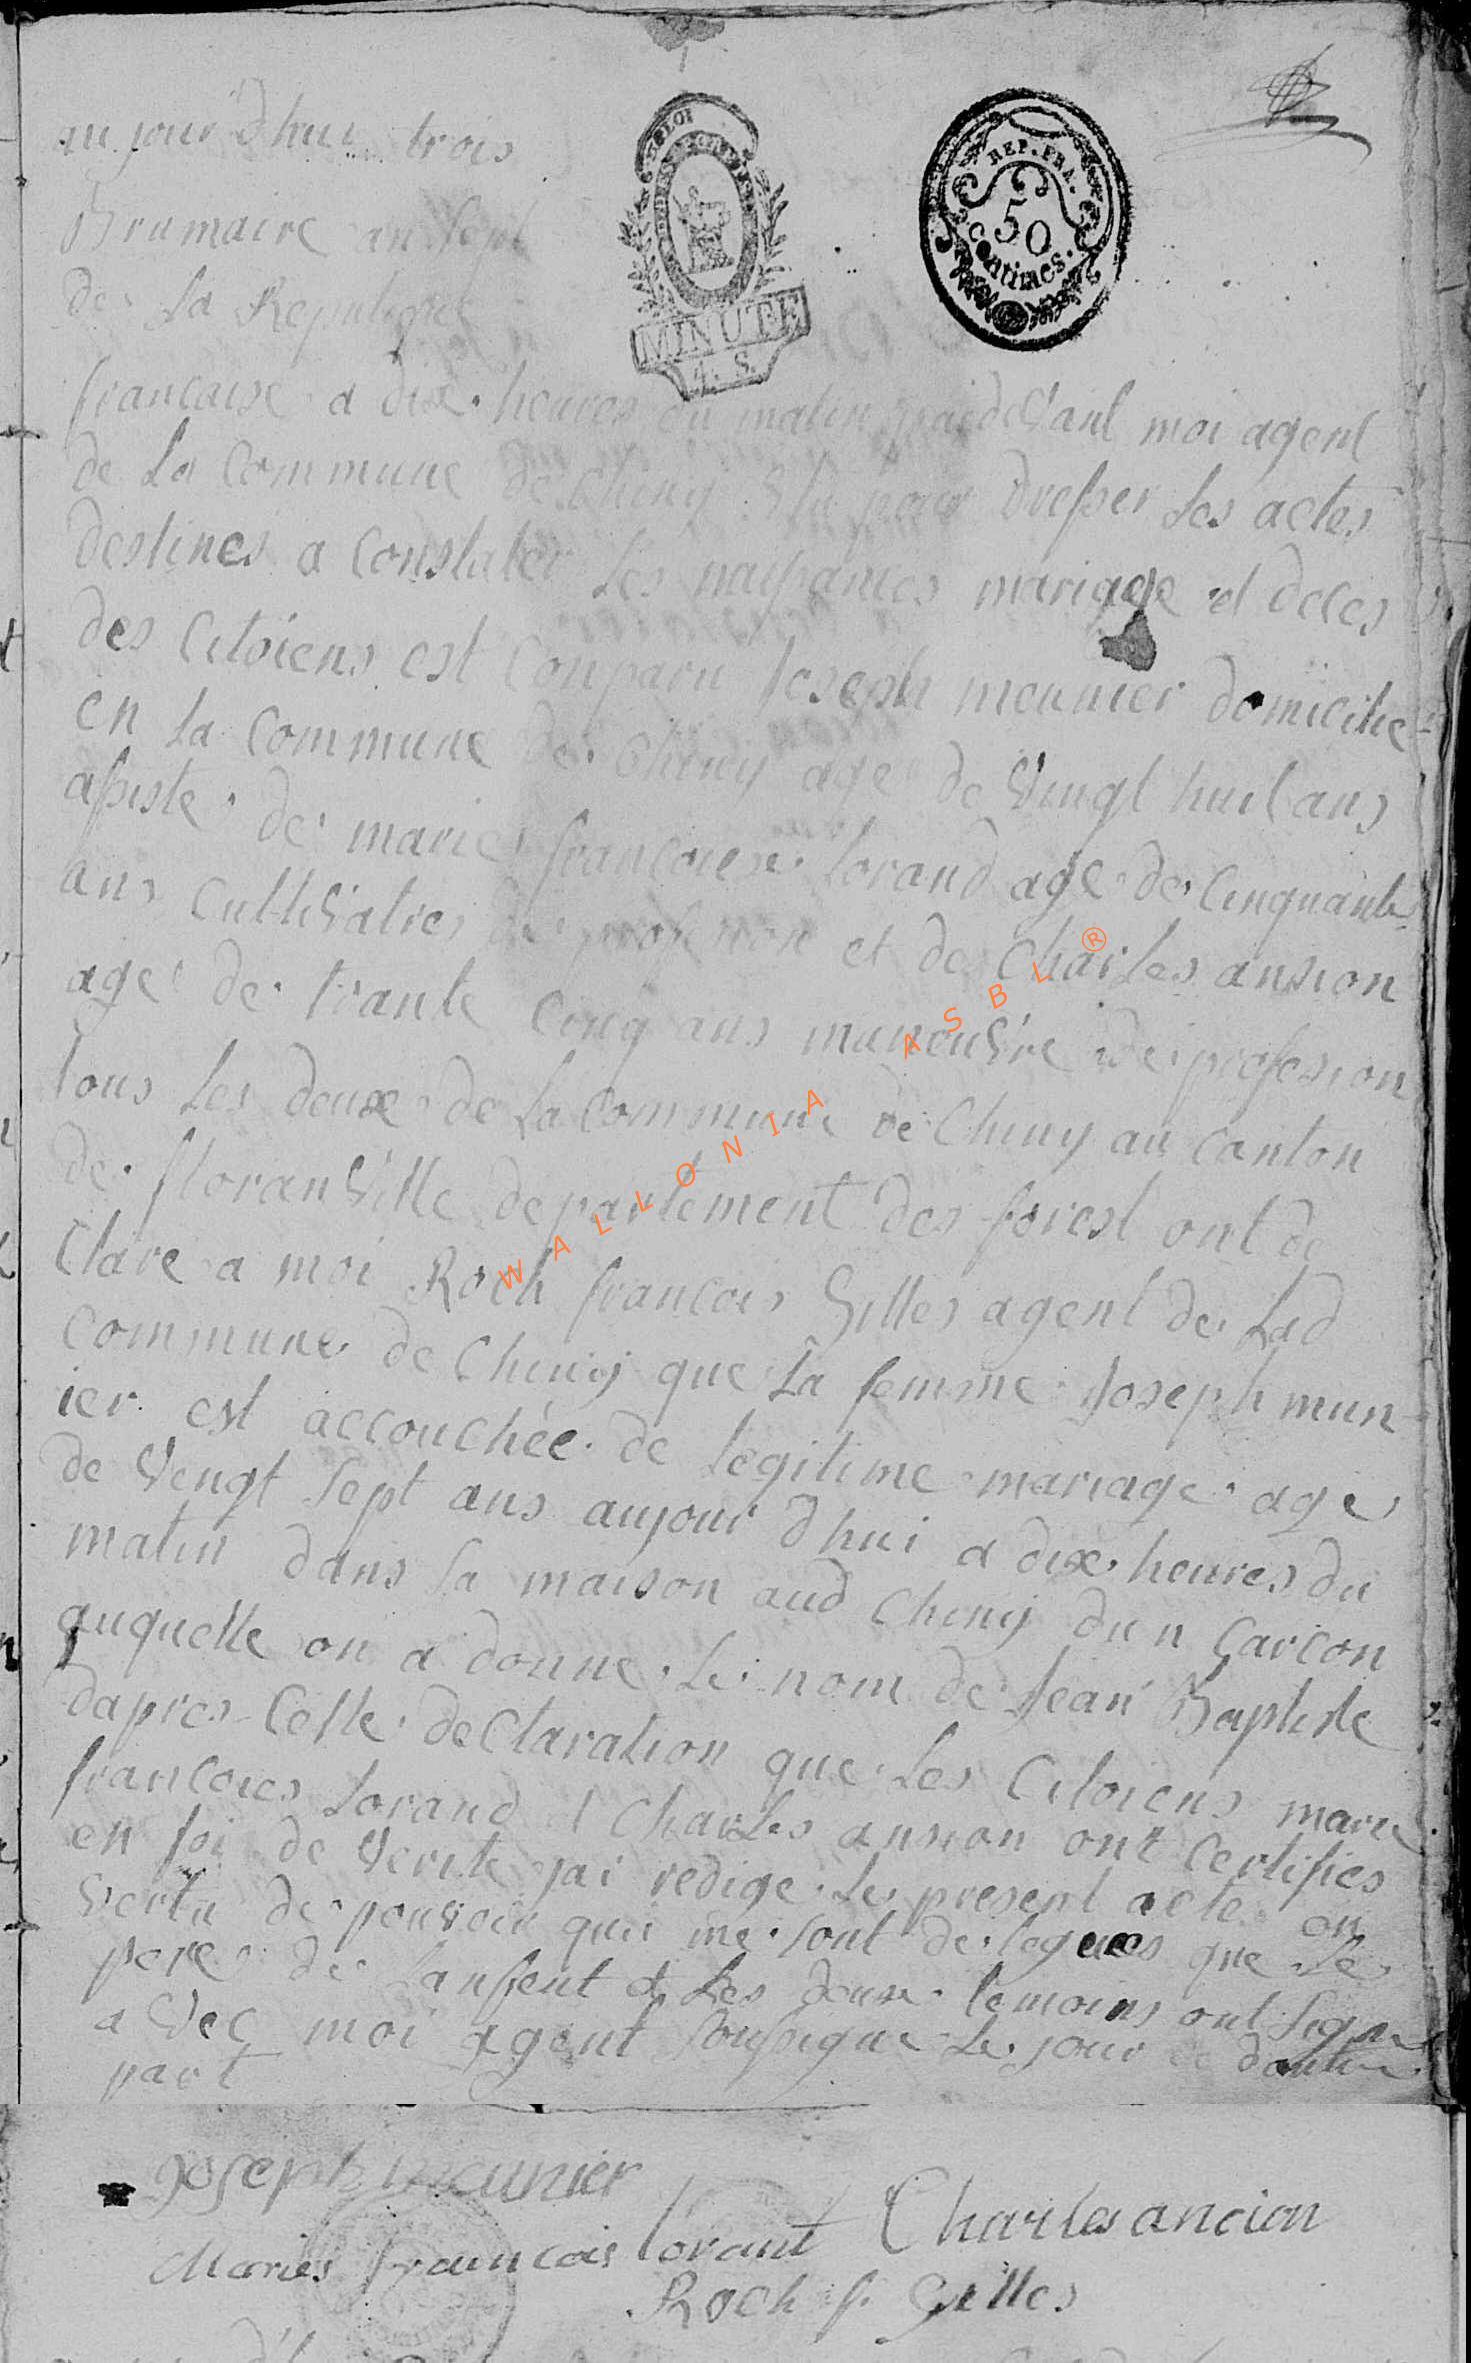 aujourd'hui trois
Brumaire an sept
de la Republique
francaise a dix heures du matin pardevant moi agent
de la commune de Chiny elu pour dresser les actes
destines a constater les naissances mariage et deces
des citoiens est conparu Joseph meunier domicilie
en la commune de Chiny age de vingt huit ans
assiste de marie francoise lorand age de cinquante
ans cultivatrice de profession et de Charles ansion
age de trante cinq ans manouvre de profession
tous les deux de la commune de Chiny au canton
de floranville departement des forest ont de
clare a moi Roch francois Gilles agent de lad
commune de Chiny que la femme Joseph mun-
ier est accouchée de legitime mariage age
de vengt sept ans aujourd'hui a dix heures du
matin dans sa maison aud Chiny dun garcon
auquelle on a donne le nom de Jean Baptiste
dapres Cette declaration que les Citoiens marie
francoies Lorand et Charles ansion ont certifies
en foi de verite jai redige le present acte en
vertu de pouvoir qui me sont delegues que le
pere de lanfent et les deux temoins ont signe
avec moi agent soussigne le jour
part
MINUTE
4. S.
REP. FRA.
50
centimes.
joseph meunier
Maries francois lorant Charles ancion
Roch f. Gilles
WALLONIA ASBL ®